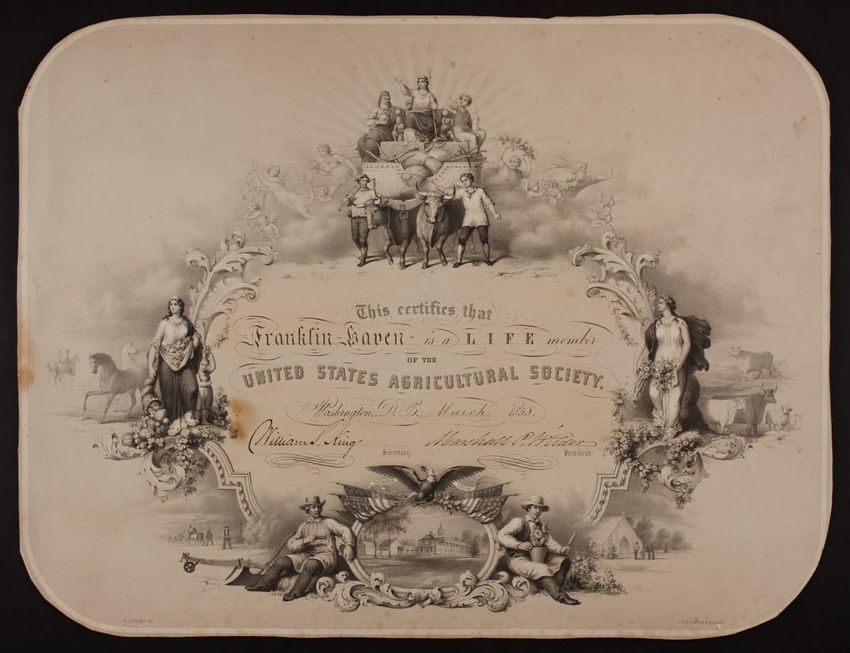 This certifies that
Franklin Haven is a LIFE member
OF THE
UNITED STATES AGRICULTURAL SOCIETY.
Washington, D.C. March 185
William S. King
Marshall P. Wilder
Secretary.
President.